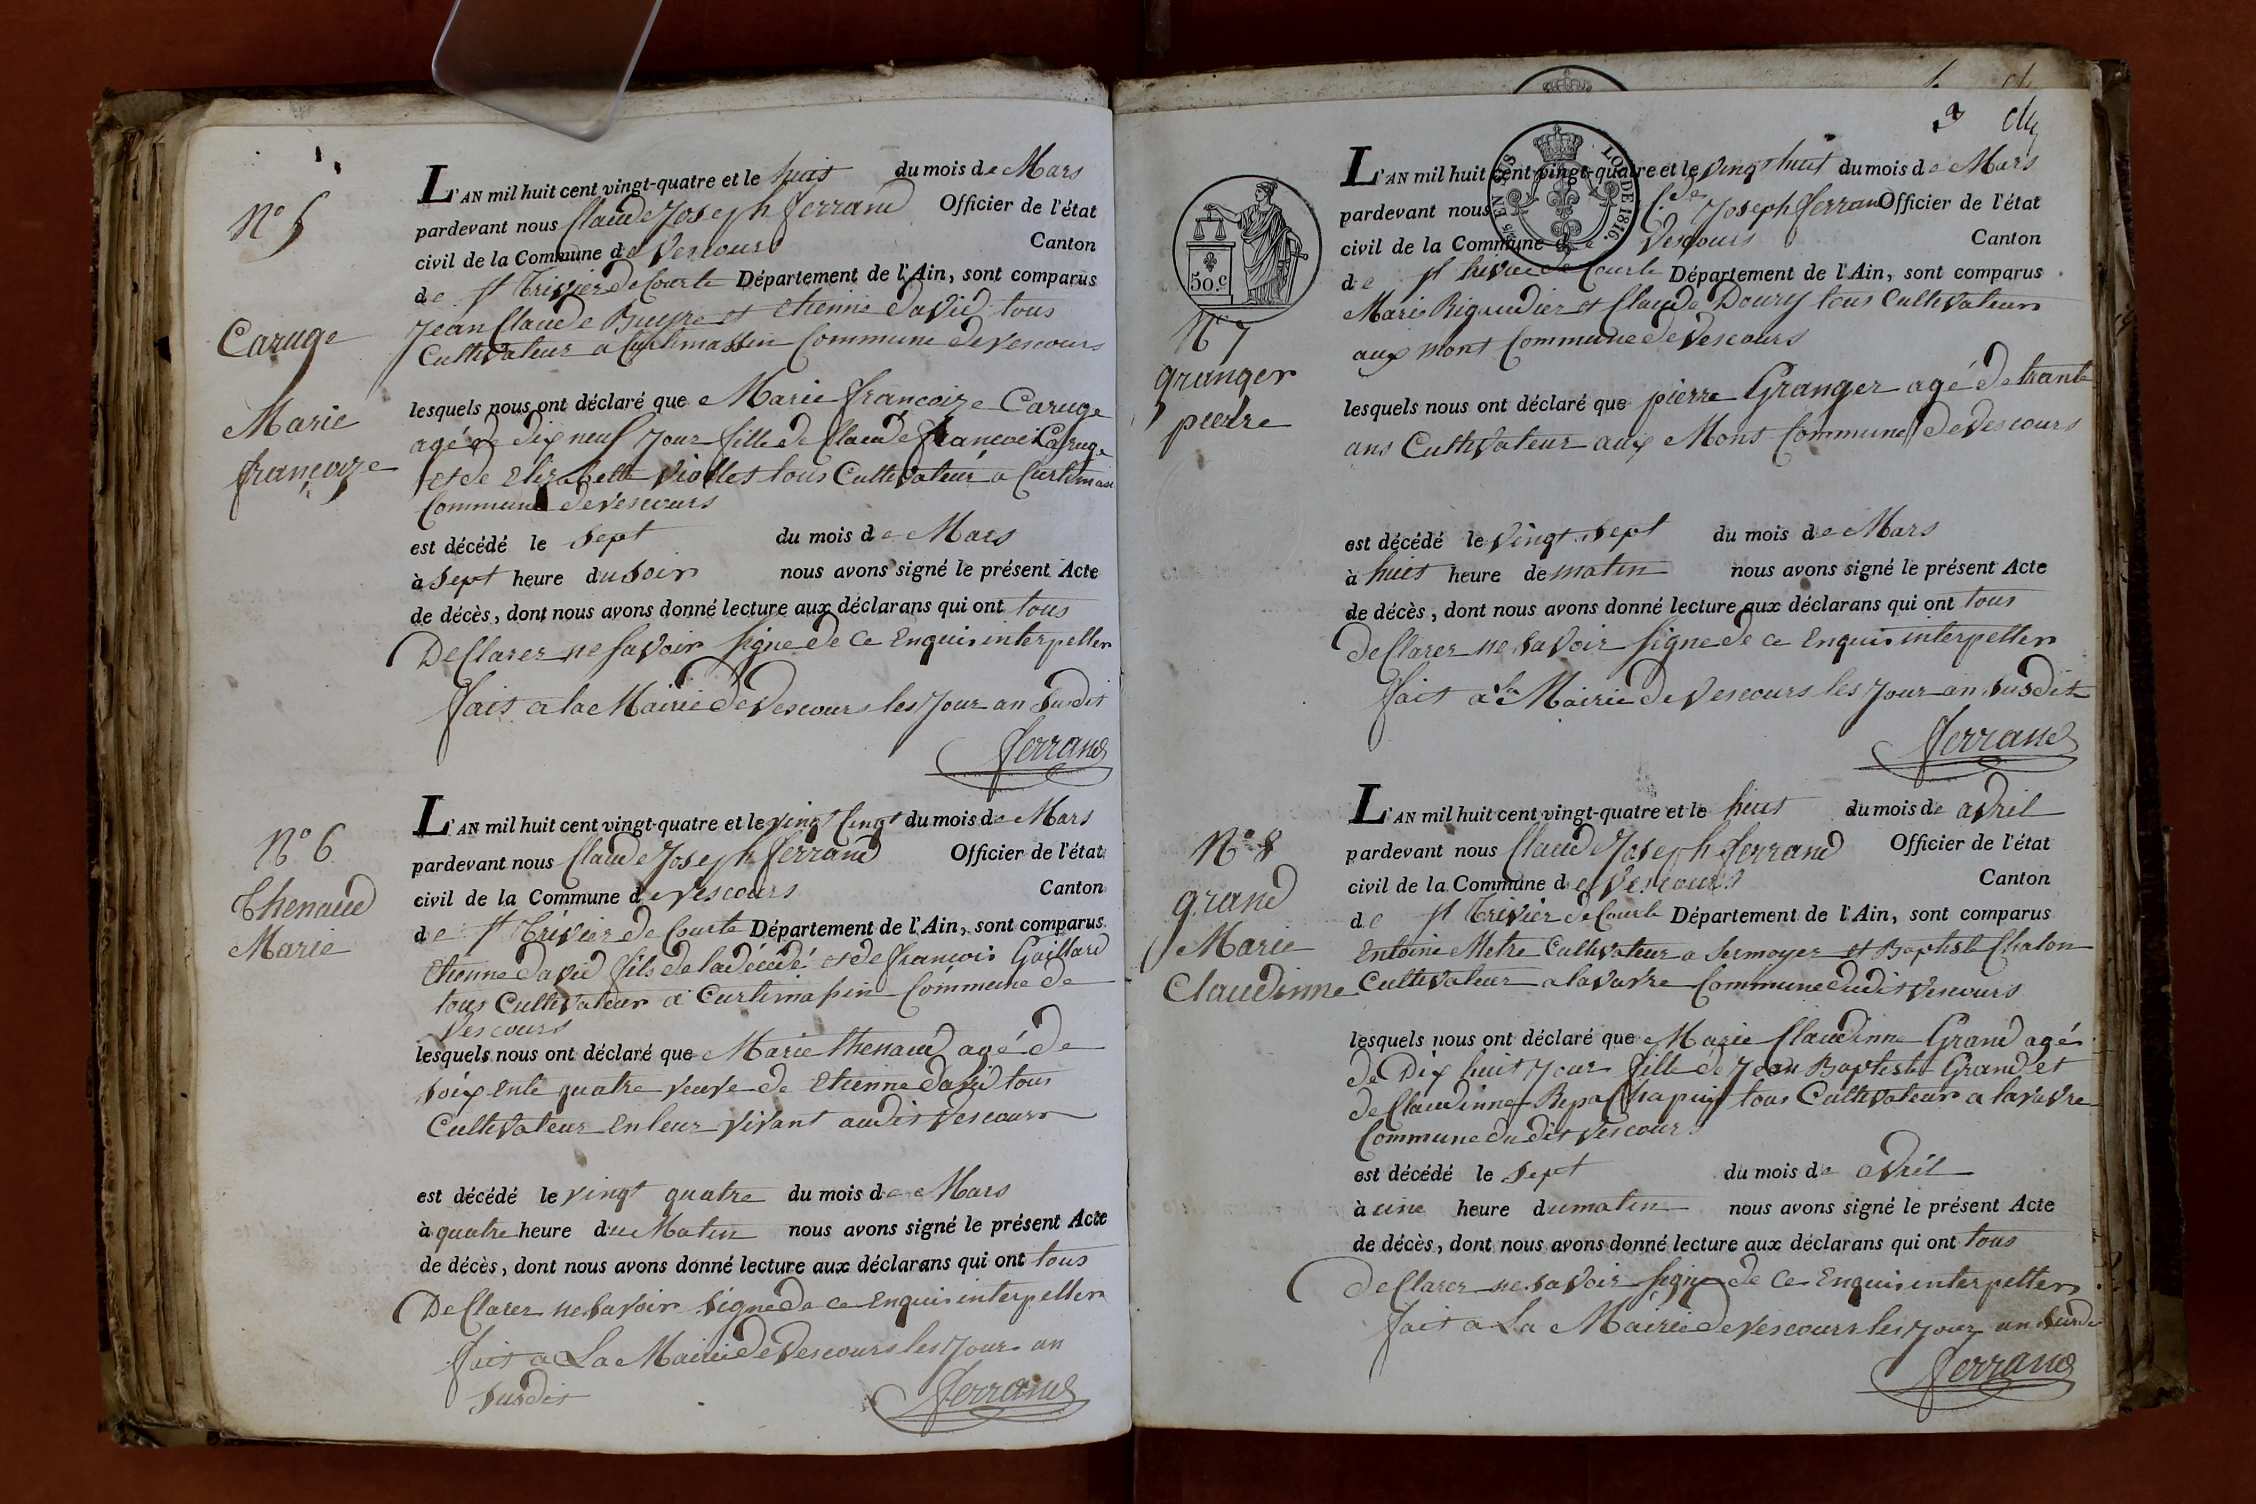 N° 5
Caruge
Marie
françoize
L'AN mil huit cent vingt-quatre et le huit du mois de Mars
pardevant nous Claude Joseph ferrand Officier de l'état
civil de la Commune de Vescours Canton
de st Trivier de Courte Département de l'Ain, sont comparus
Jean Claude Buyre et Etienne david tous
Cultivateur a Curtimassin Commune de vescours
lesquels nous ont déclaré que Marie françoize Caruge
agé de dix neuf jour fille de Claude francois Caruge
et de Elizabette Viollet tous Cultivateur a Curtimas
Commune de vescours
est décédé le sept du mois de Mars
à sept heure du soir nous avons signé le présent Acte
de décès, dont nous avons donné lecture aux déclarans qui ont tous
Declarer ne savoir signe de ce Enquis interpeller
fait a la Mairie de vescours les jour an susdit
ferrand
N° 6
Thenaud
Marie
L'AN mil huit cent vingt-quatre et le vingt Cinqt du mois de Mars
pardevant nous Claude Joseph ferrand Officier de l'état
civil de la Commune de vescours Canton
de st Trivier de Courte Département de l'Ain, sont comparus
Etienne david fils de la décédé et de françois Gaillard
tous Cultivateur a Curtimassin Commune de
Vescours
lesquels nous ont déclaré que Marie thenaud agé de
soixente quatre veuve de Etienne david tous
Cultivateur En leur vivant audit vescours
est décédé le vingt quatre du mois de Mars
à quatre heure du Matin nous avons signé le présent Acte
de décès, dont nous avons donné lecture aux déclarans qui ont tous
Declarer ne savoir signe de ce enquis interpeller
fait a La Mairie de vescours les jour an
susdit
ferrand
3
50 c
EN SUS
LOI DE 1816.
N° 7
granger
pierre
L'AN mil huit cent vingt-quatre et le vingt huit du mois de Mars
pardevant nous Cde Joseph ferrand Officier de l'état
civil de la Commune de Vescours Canton
de st trivier de Courte Département de l'Ain, sont comparus
Marie Rigaudier et Claude Doury tous Cultivateur
aux mont Commune de vescours
lesquels nous ont déclaré que pierre Granger agé de trante
ans Cultivateur aux Mons Commune de vescours
est décédé le vingt sept du mois de Mars
à huit heure de matin nous avons signé le présent Acte
de décès, dont nous avons donné lecture aux déclarans qui ont tous
declarer ne savoir signe de ce enquis interpeller
fait a la Mairie de vescours les jour an susdit
ferrand
N° 8
grand
Marie
Claudinne
L'AN mil huit cent vingt-quatre et le huit du mois de avril
pardevant nous Claude Joseph ferrand Officier de l'état
civil de la Commune de Vescours Canton
de st Trivier de Courte Département de l'Ain, sont comparus
Entoine Metre Cultivateur a Sermoyer et Baptiste Chalon
Cultivateur a lavavre Commune dudit vescours
lesquels nous ont déclaré que Marie Claudinne Grand agé
de Dix huit jour fille de Jean Baptiste Grand et
de Claudinne Repa Chapuis tous Cultivateur a lavavre
Commune du dit vescours
est décédé le sept du mois de avril
à une heure du matin nous avons signé le présent Acte
de décès, dont nous avons donné lecture aux déclarans qui ont tous
declarer ne savoir signe de ce Enquis interpeller
fait a La Mairie de vescours les jour an susdi
ferrand